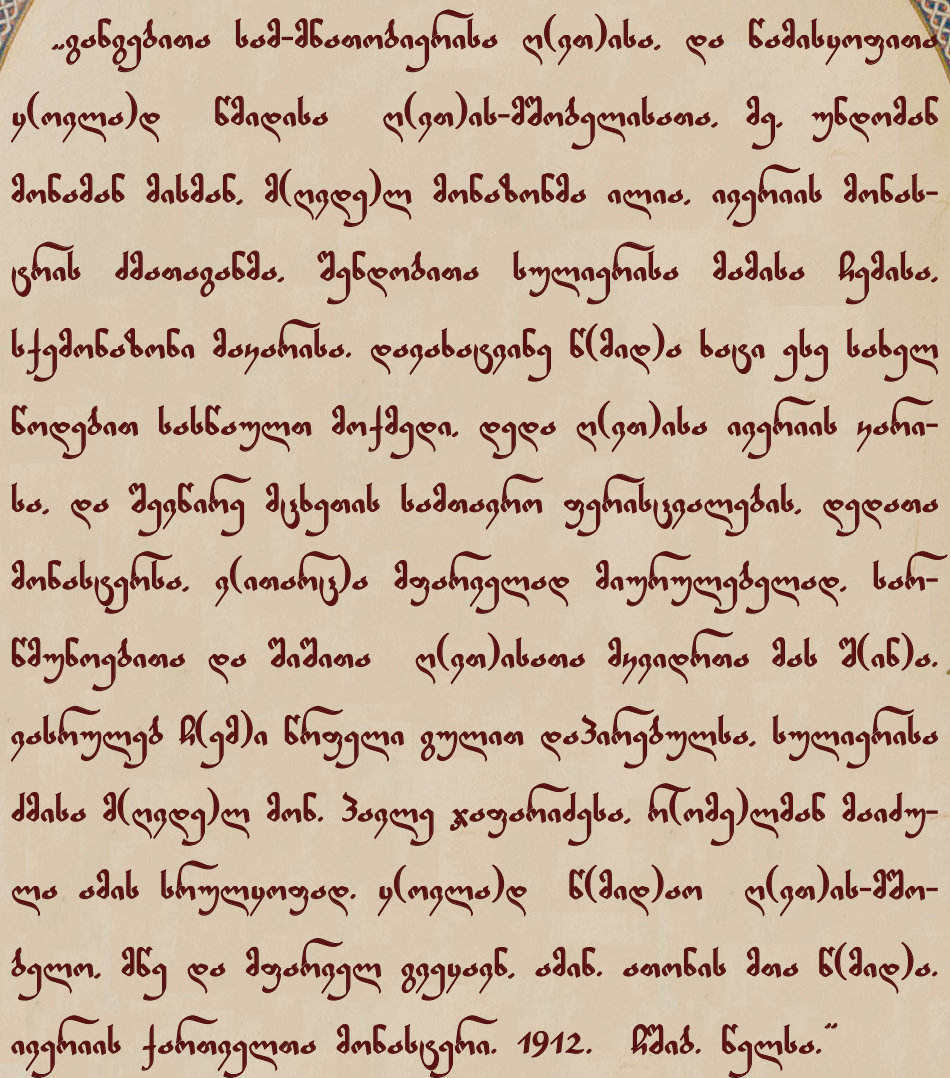 „განგებითა სამ-მნათობიერისა ღ(ვთ)ისა, და წამისყოფითა
ყ(ოვლა)დ წმიდისა ღ(ვთ)ის-მშობელისათა, მე, უნდომან
მონამან მისმან, მ(ღვდე)ლ მონაზონმა ილია, ივერიის მონას-
ტრის ძმათაგანმა, შენდობითა სულიერისა მამისა ჩემისა,
სქემონაზონი მაკარისა. დავახატვინე წ(მიდ)ა ხატი ესე სახელ
წოდებით სასწაულთ მოქმედი, დედა ღ(ვთ)ისა ივერიის კარი-
სა, და შევწირე მცხეთის სამთავრო ფერისცვალების, დედათა
მონასტერსა, ვ(ითარც)ა მფარველად მიურულებელად, სარ-
წმუნოებითა და შიშითა ღ(ვთ)ისათა მკვიდრთა მას შ(ინ)ა.
ვასრულებ ჩ(ემ)ი წრფელი გულით დაპირებულსა, სულიერისა
ძმისა მ(ღვდე)ლ მონ. პავლე ჯაფარიძესა, რ(ომე)ლმან მაიძუ-
ლა ამის სრულყოფად. ყ(ოვლა)დ წ(მიდ)აო ღ(ვთ)ის-მშო-
ბელო, მწე და მფარველ გვეყავნ, ამინ. ათონის მთა წ(მიდ)ა.
ივერიის ქართველთა მონასტერი. 1912. ჩშიბ. წელსა.“